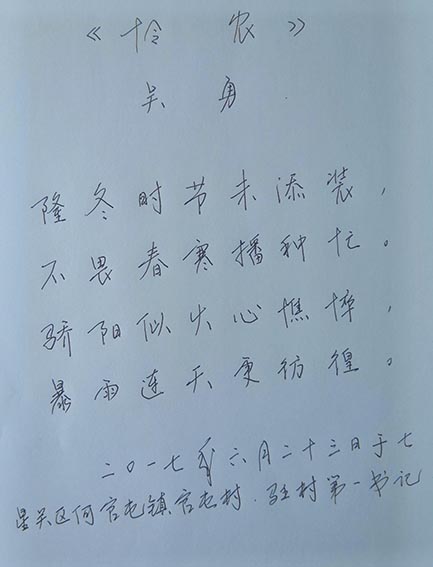 《怜农》
吴勇
隆冬时节未添装，
不畏春寒播种忙。
骄阳似火心憔悴，
暴雨连天更彷徨。
二0一七年六月二十三日于七
星关区何官屯镇官屯村.驻村第一书记